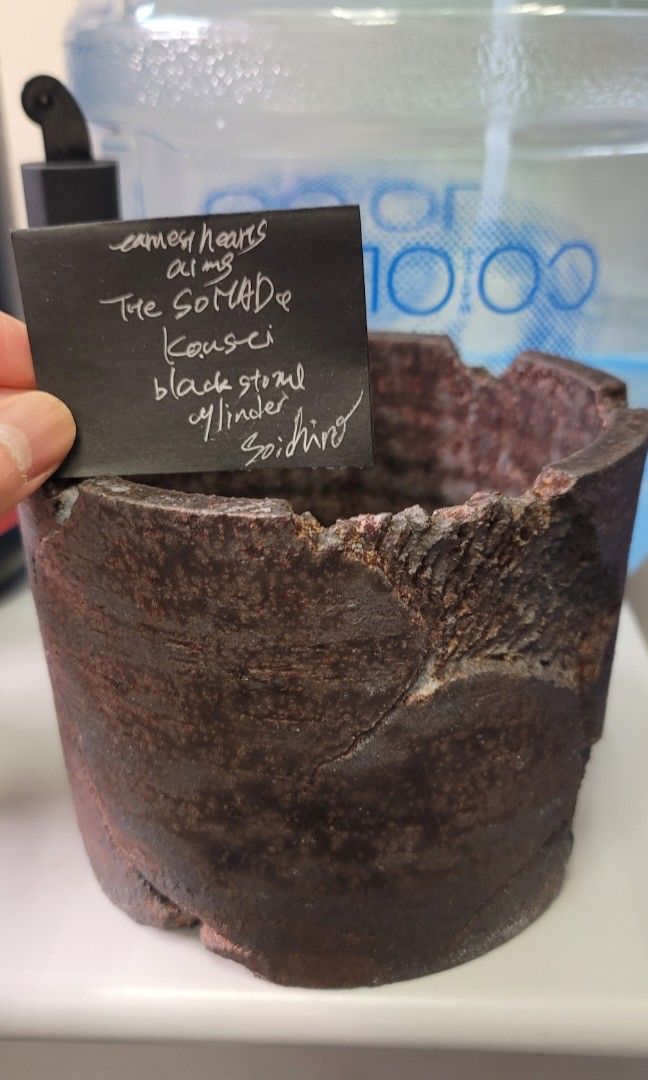 earnest hearts
aims
THE SOMADe
Kousei
black stone
cylinder
Soichiro
COOL